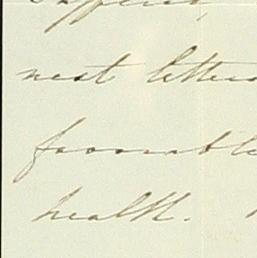 next letters
favorable
health.